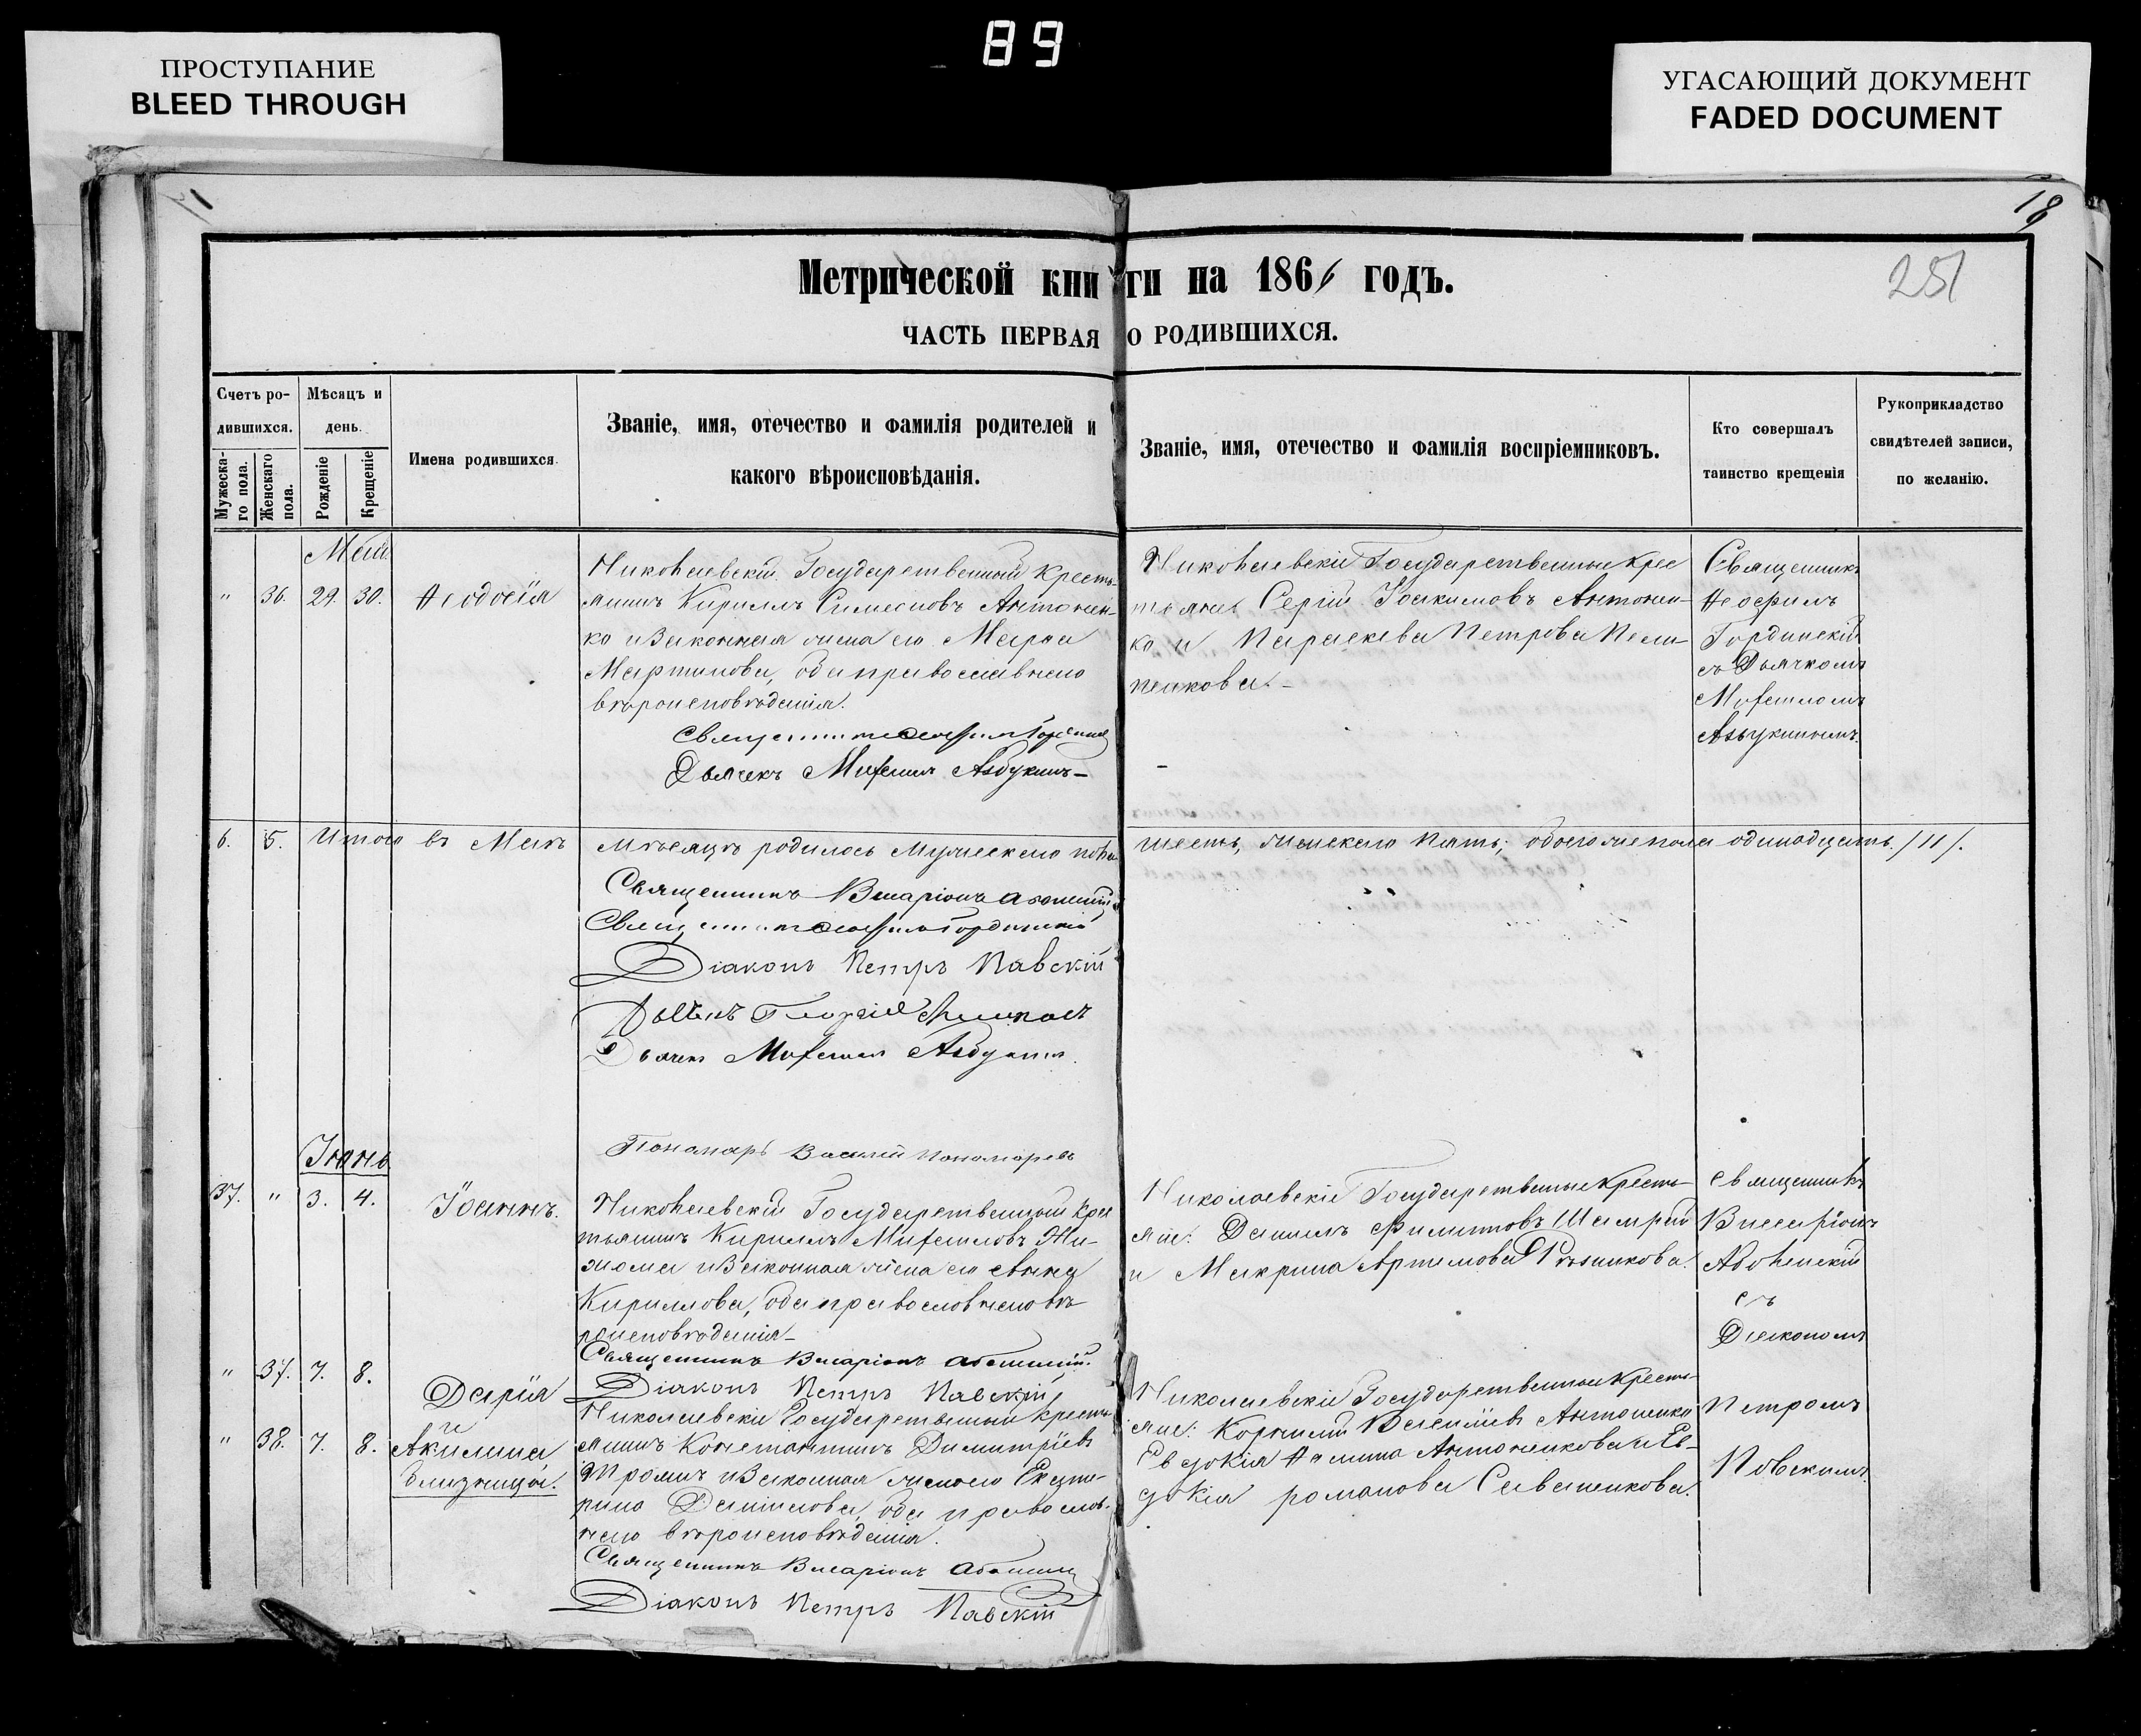 89
ПРОСТУПАНИЕ
BLEED THROUGH
УГАСАЮЩИЙ ДОКУМЕНТ
FADED DOCUMENT
18
251
Метрической книги на 1866 годъ.
ЧАСТЬ ПЕРВАЯ О РОДИВШИХСЯ.
Счетъ родившихся.
Мужескаго пола.
Женскаго пола.
Мѣсяцъ и день.
Рожденіе
Крещеніе
Имена родившихся.
Званіе, имя, отечество и фамилія родителей и
какого вѣроисповѣданія.
Званіе, имя, отечество и фамилія воспріемниковъ.
Кто совершалъ
таинство крещенія
Рукоприкладство
свидѣтелей записи,
по желанію.
Май.
" 36. 29. 30. Ѳеодосія
Николаевскій Государственный кресть-
янинъ Кирилъ Симеоновъ Антонен-
ко и законная жена его Марѳа
Мартинова, оба православнаго
вѣроисповѣданія.
Священникъ Ѳеофилъ Гординскій
Дьячекъ Михаилъ Азбукинъ
Николаевскіе Государственные крес
тьяне Сергій Іоакимовъ Антонен-
ко и Параскева Петрова Пели-
пенкова.
Священникъ
Ѳеофилъ
Гординскій
съ Дьячкомъ
Михаиломъ
Азбукинымъ.
6. 5. Итого въ Маѣ мѣсяцѣ родилось мужескаго пола шесть, женскаго пять; обоего же пола одинадцать /11/.
Священникъ Висаріонъ
Священникъ Ѳеофилъ Гординскій
Діаконъ Петръ Павскій
Дьячекъ Георгій
Дьячекъ Михаилъ Азбукинъ
Пономарь Василій Пономаревъ
Іюнь
37. " 3. 4. Іоаннъ.
Николаевскій Государственный крес
тьянинъ Кирилъ Михаиловъ Жи-
жома и законная жена его Анна
Кириллова, оба православнаго вѣ
роисповѣданія
Священникъ Висаріонъ
Діаконъ Петръ Павскій
Николаевскіе Государственные кресть-
яне: Даніилъ Филиповъ Шамрай
и Макрина Артемова Рѣзникова.
Священникъ
Висаріонъ
съ
Діакономъ
Петромъ
Павскимъ.
" 37. 7. 8. Дарія
и
" 38. 7. 8. Акилина
близнецы.
Николаевскій Государственный кресть-
янинъ Константинъ Димитріевъ
и законная жена его Екате-
рина Даніилова, оба православ-
наго вѣроисповѣданія.
Священникъ Висаріонъ
Діаконъ Петръ Павскій
Николаевскіе Государственные кресть-
яне: Корнилій Василіевъ Антоненко
Евдокія Ѳомина Антоненкова и Ев-
докія Романова Саваненкова.